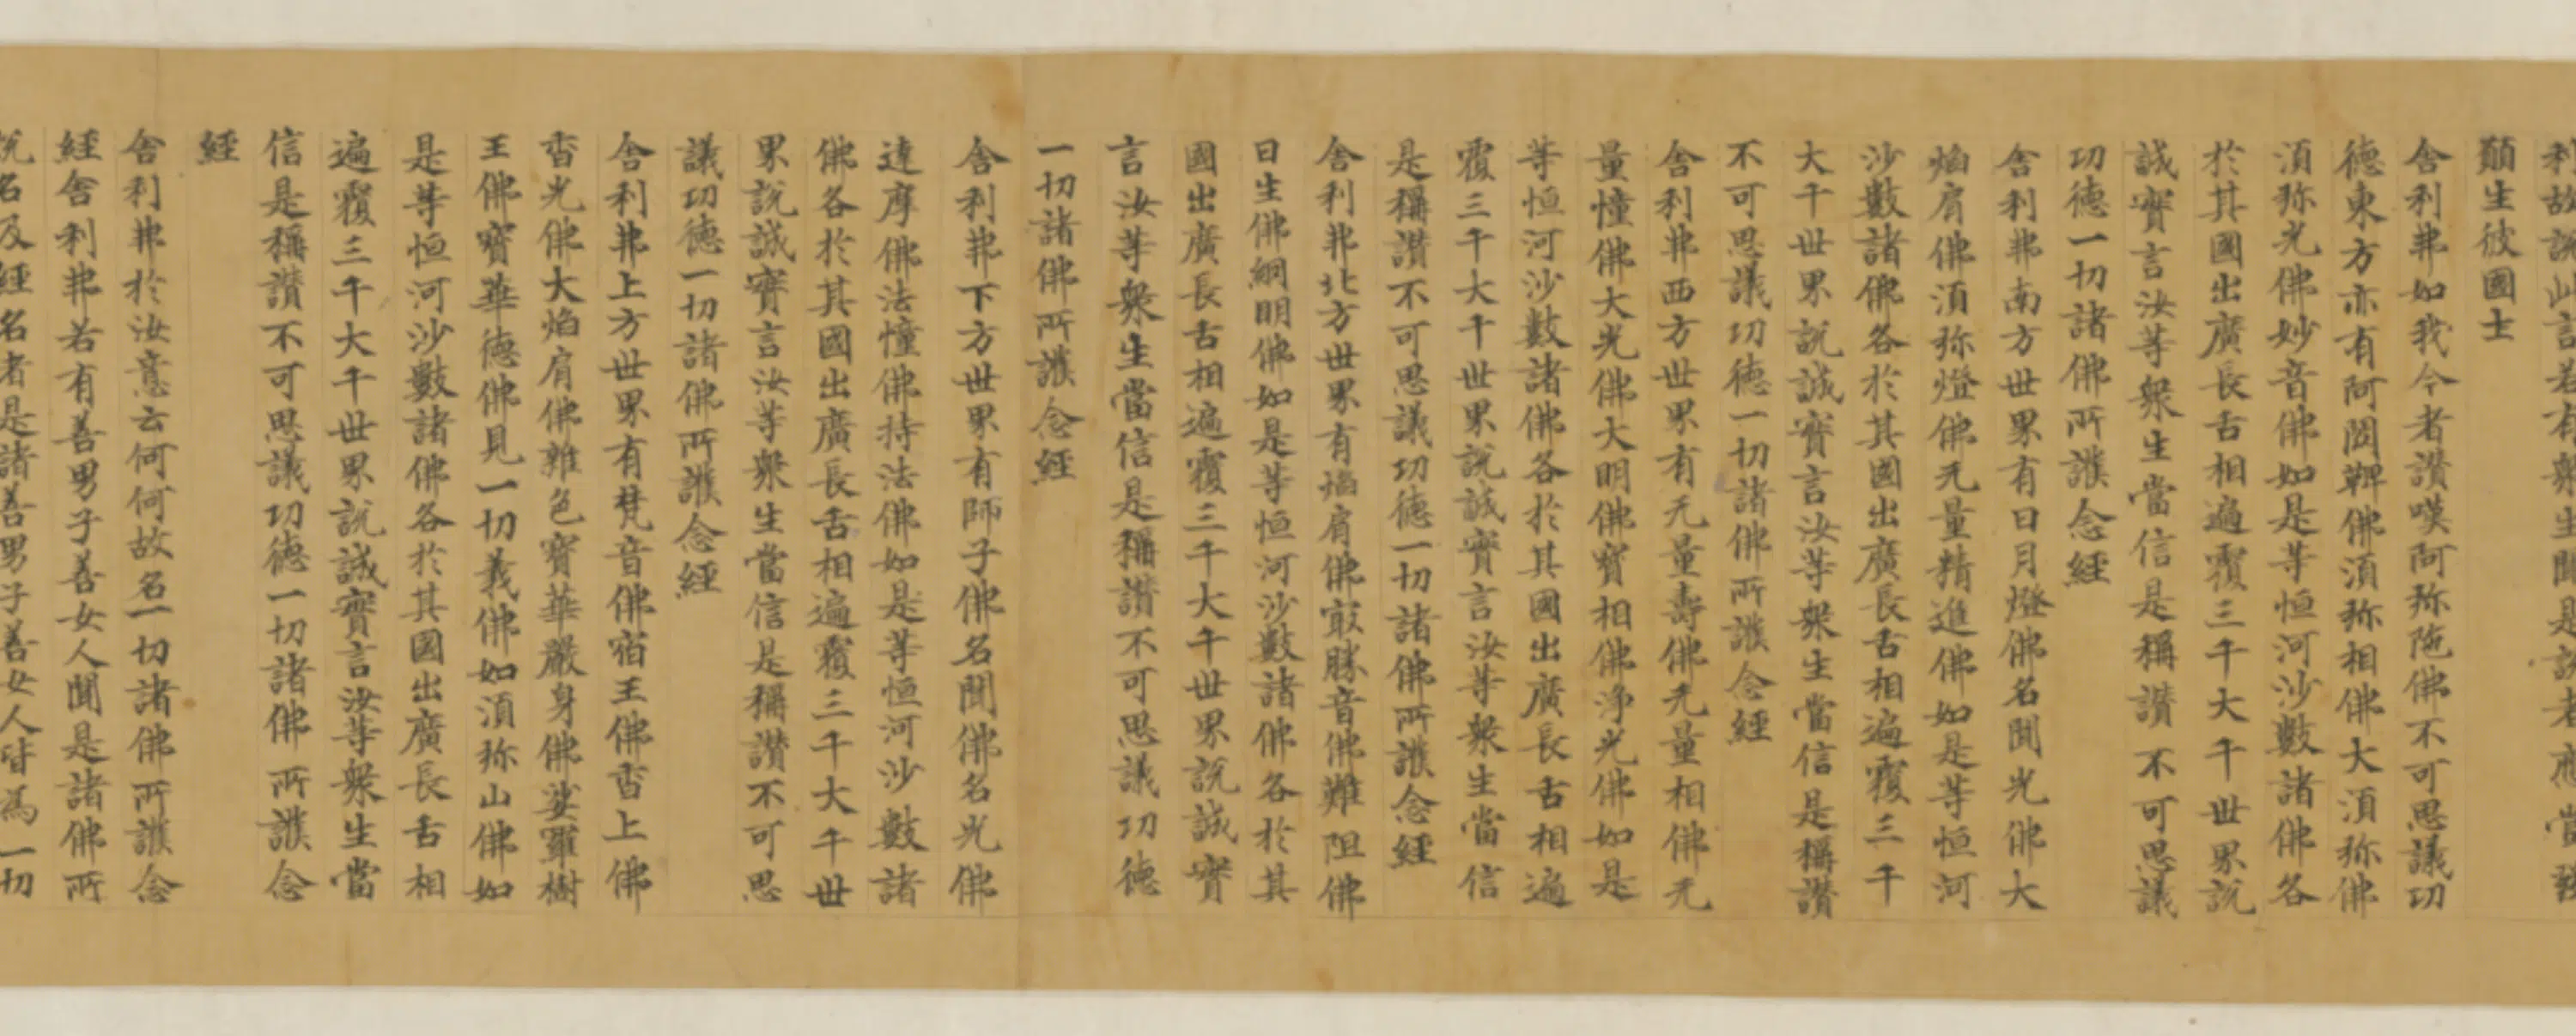 利故說此言若有衆生聞是說者應當發
願生彼國土
舍利弗如我今者讃嘆阿弥陁佛不可思議功
德東方亦有阿閦鞞佛湏弥相佛大湏弥佛
湏弥光佛妙音佛如是等恒河沙數諸佛各
於其國出廣長舌相遍覆三千大千世界說
誠實言汝等衆生當信是稱讃不可思議
功德一切諸佛所護念經
舍利弗南方世界有日月燈佛名聞光佛大
焰肩佛湏弥燈佛无量精進佛如是等恒河
沙數諸佛各於其國出廣長舌相遍覆三千
大千世界說誠實言汝等衆生當信是稱讃
不可思議功德一切諸佛所護念經
舍利弗西方世界有无量壽佛无量相佛无
量憧佛大光佛大明佛寶相佛淨光佛如是
等恒河沙數諸佛各於其國出廣長舌相遍
覆三千大千世界說誠實言汝等衆生當信
是稱讃不可思議功德一切諸佛所護念經
舍利弗北方世界有焰肩佛㝡勝音佛難阻佛
日生佛綱明佛如是等恒河沙數諸佛各於其
國出廣長舌相遍覆三千大千世界說誠實
言汝等衆生當信是稱讃不可思議功德
一切諸佛所護念經
舍利弗下方世界有師子佛名聞佛名光佛
達摩佛法憧佛持法佛如是等恒河沙數諸
佛各於其國出廣長舌相遍覆三千大千世
界說誠實言汝等衆生當信是稱讃不可思
議功德一切諸佛所護念經
舍利弗上方世界有梵音佛宿王佛香上佛
香光佛大焰肩佛雜色寶華嚴身佛娑羅樹
王佛寶華德佛見一切義佛如湏弥山佛如
是等恒河沙數諸佛各於其國出廣長舌相
遍覆三千大千世界說誠實言汝等衆生當
信是稱讃不可思議功德一切諸佛所護念
經
舍利弗於汝意云何何故名一切諸佛所護念
經舍利弗若有善男子善女人聞是諸佛所
說名及經名者是諸善男子善女人皆爲一切